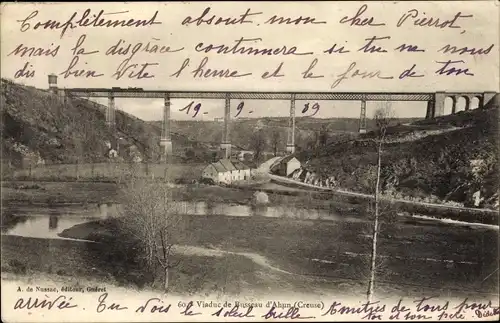 Complètement absout, mon cher Pierrot,
mais la disgrâce continuera si tu ne nous
dis bien vite l'heure et le jour de ton
19 9 09
A. de Nussac, éditeur, Guéret
60 Viaduc de Busseau d'Ahun (Creuse)
arrivée. Tu vois Guéret a le soleil brille, Amitiés de tous pour
ton et ton père